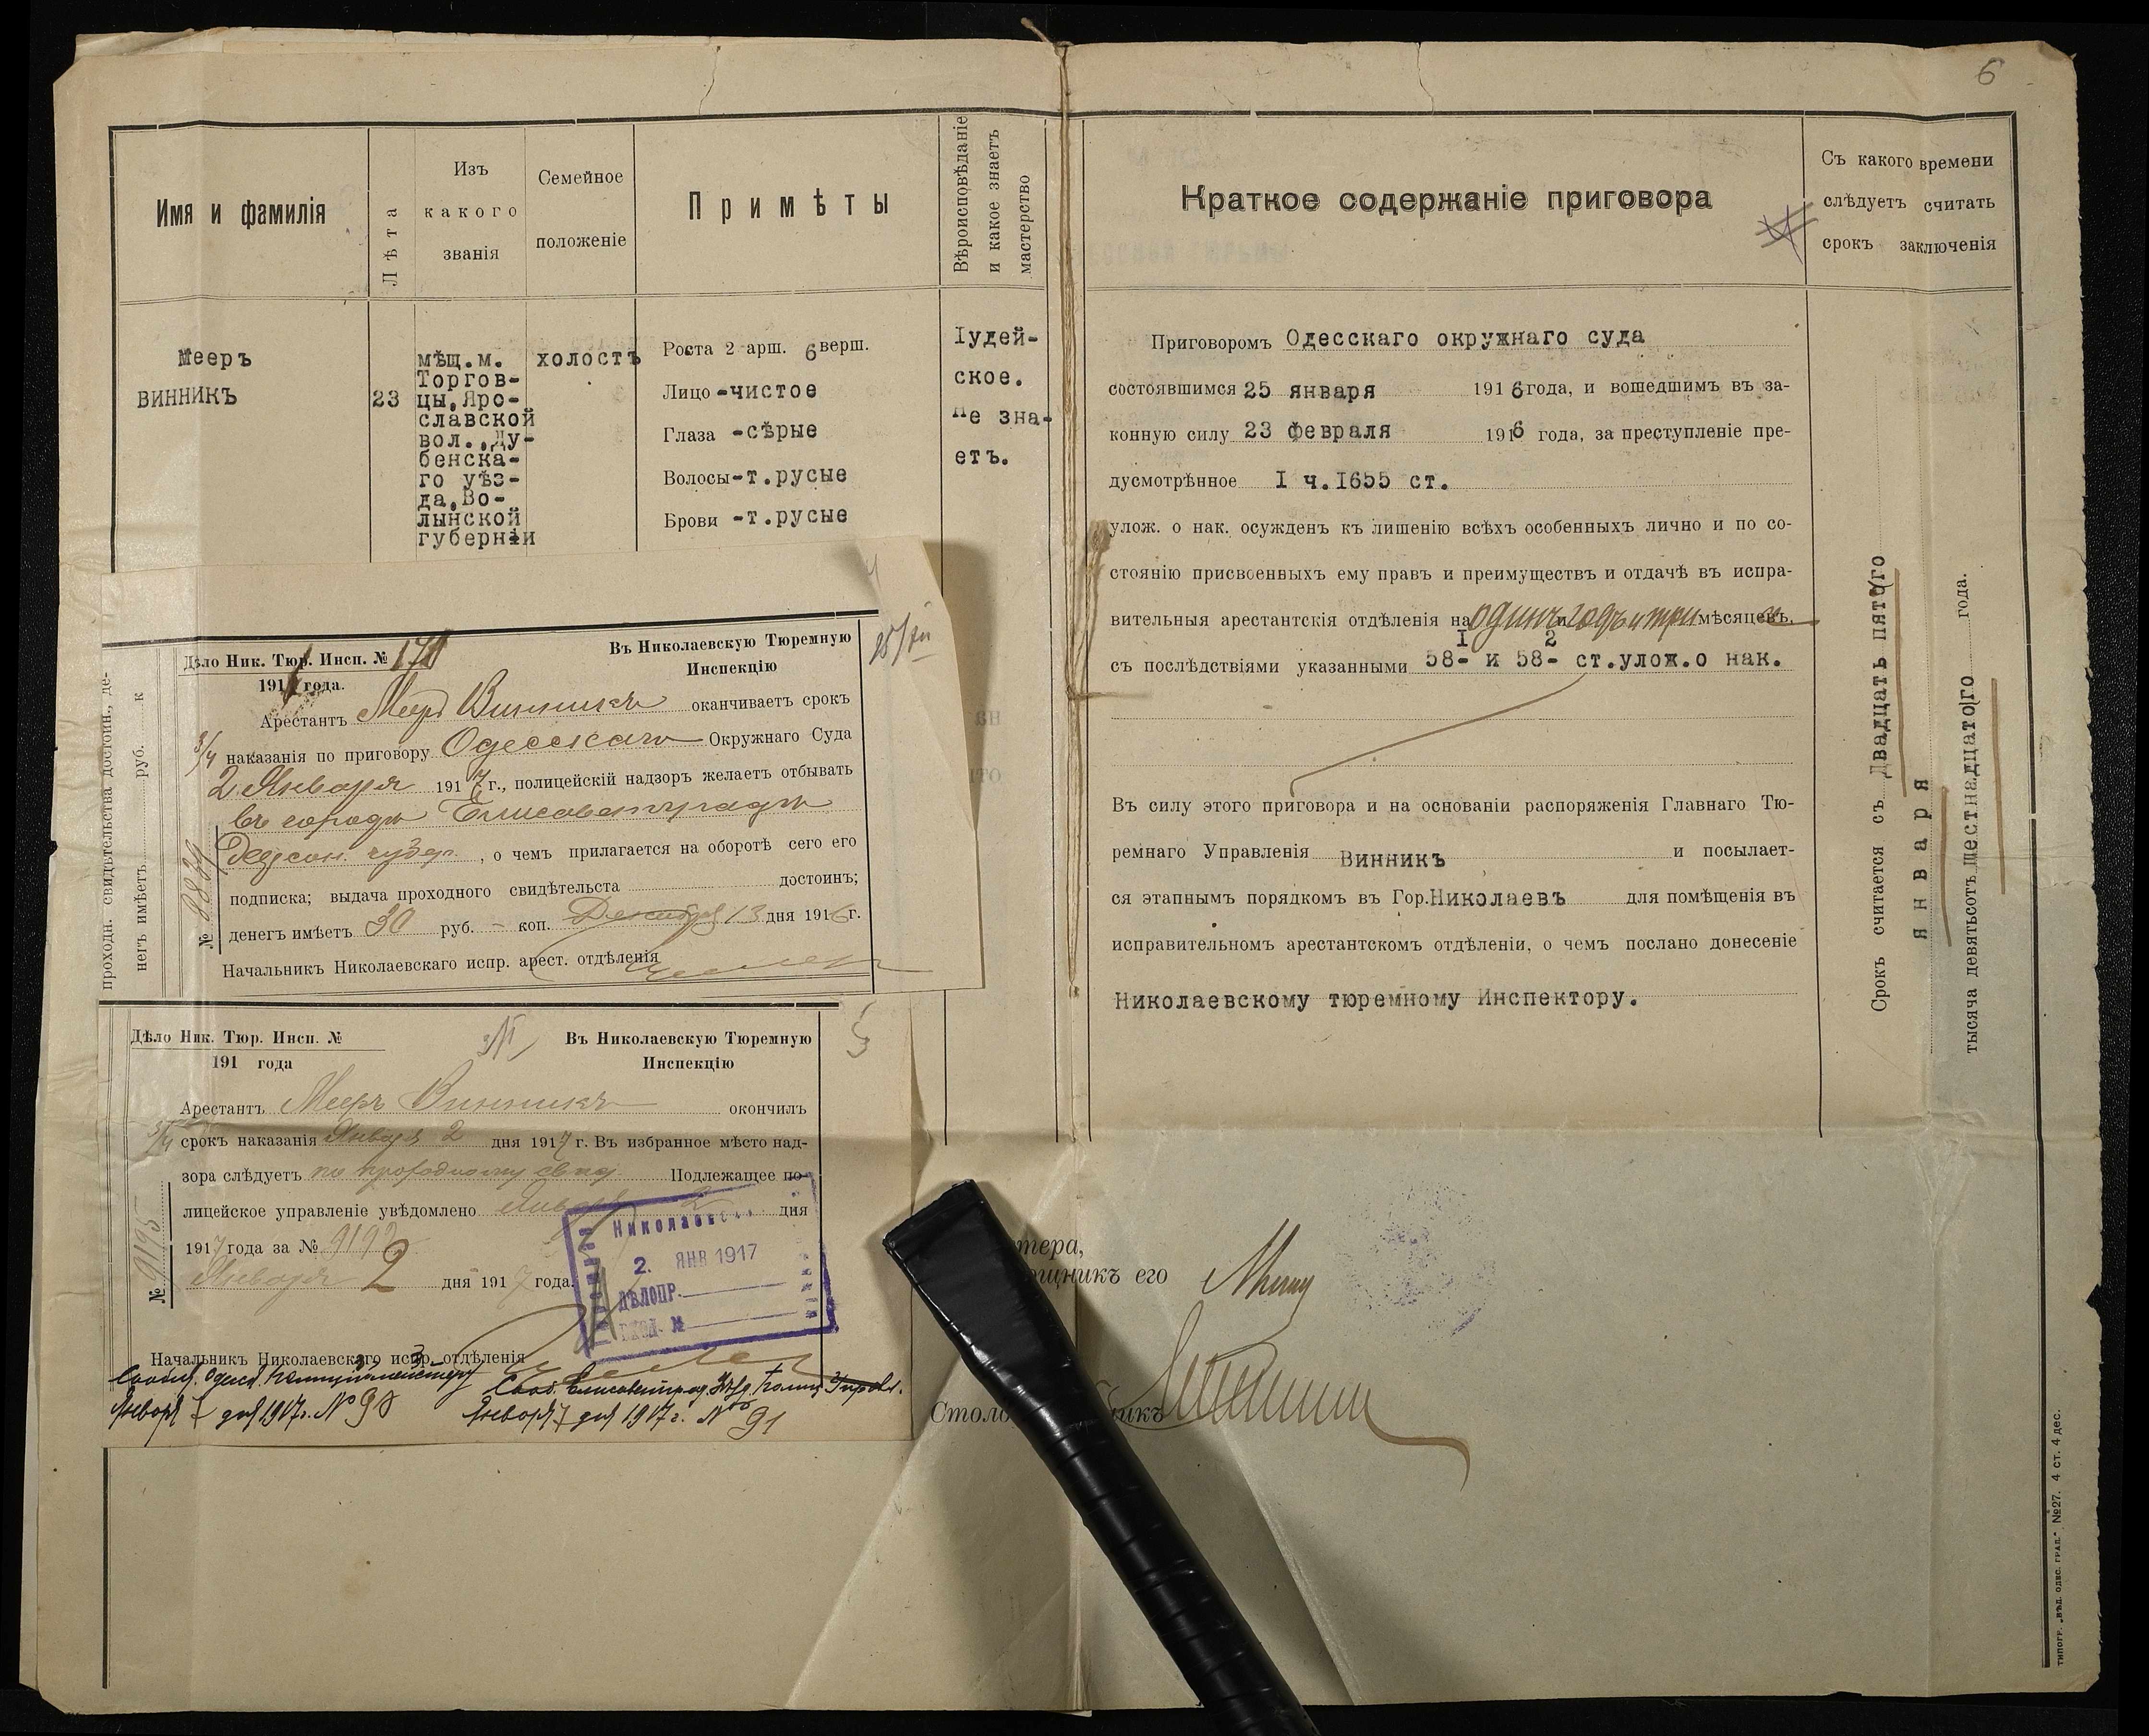 6
Имя и фамилія
Лѣта
Изъ
какого
званія
Семейное
положеніе
Примѣты
Вѣроисповѣданіе
и какое знаетъ
мастерство
Мееръ
ВИННИКЪ
23
мѣщ.м.
Торгов-
цы,Яро-
славской
вол.,Ду-
бенска-
го уѣз-
да,Во-
лынской
губерніи
холостъ
Роста 2 арш. 6 верш.
Лицо -чистое
Глаза -сѣрые
Волосы-т.русые
Брови -т.русые
Іудей-
ское.
Не зна-
етъ.
Краткое содержаніе приговора
Съ какого времени
слѣдуетъ считать
срокъ заключенія
Приговоромъ Одесскаго окружнаго суда
состоявшимся 25 января 1916 года, и вошедшимъ въ за-
конную силу 23 февраля 1916 года, за преступленіе пре-
дусмотрѣнное I ч.I655 ст.
улож. о нак. осужденъ къ лишенію всѣхъ особенныхъ лично и по со-
стоянію присвоенныхъ ему правъ и преимуществъ и отдачѣ въ испра-
вительныя арестантскія отдѣленія на одинъ годъ и три мѣсяцевъ.
I 2
съ послѣдствіями указанными 58- и 58- ст.улож.о нак.
Въ силу этого приговора и на основаніи распоряженія Главнаго Тю-
ремнаго Управленія Винникъ и посылает-
ся этапнымъ порядкомъ въ Гор.Николаевъ для помѣщенія въ
исправительномъ арестантскомъ отдѣленіи, о чемъ послано донесеніе
Николаевскому тюремному Инспектору.
Срокъ считается съ Двадцать пятого
января
тысяча девятьсотъ шестнадцатого года.
проходн. свидѣтельства достоин., де-
негъ имѣетъ руб. к
Дѣло Ник. Тюр. Инсп. № 171
1911 года.
Въ Николаевскую Тюремную
Инспекцію
Арестантъ Мееръ Винникъ оканчиваетъ срокъ
3/4 наказанія по приговору Одесскаго Окружнаго Суда
2 Января 1917 г., полицейскій надзоръ желаетъ отбывать
въ городѣ Елисаветградѣ
Херсон. губер. , о чемъ прилагается на оборотѣ сего его
подписка; выдача проходного свидѣтельства достоинъ;
денегъ имѣетъ 30 руб. - коп. Декабря 13 дня 1916 г.
Начальникъ Николаевскаго испр. арест. отдѣленія
№ 8839
Дѣло Ник. Тюр. Инсп. №
191 года
Въ Николаевскую Тюремную
Инспекцію
5
Арестантъ Мееръ Винникъ окончилъ
3/4 срокъ наказанія Января 2 дня 1917 г. Въ избранное мѣсто над-
зора слѣдуетъ по проходному свид. Подлежащее по-
лицейское управленіе увѣдомлено Января 2 дня
1917 года за № 9192
Января 2 дня 1917 года.
№ 9195
Николаевск
2. ЯНВ 1917
ДѢЛОПР.
ВХОД. №
Начальникъ Николаевскаго испр. отдѣленія
Сообщ. Одесс. Полиціймейстеру
Января 7 дня 1917 г. № 90
Сооб. Елисаветград. Уѣзд. Полиц. Управл.
Января 7 дня 1917 г. № 91
тера,
ощникъ его
Столо
икъ
ТИПОГР. „ВѢД. ОДЕС. ГРАД.“ №27. 4 СТ. 4 дес.